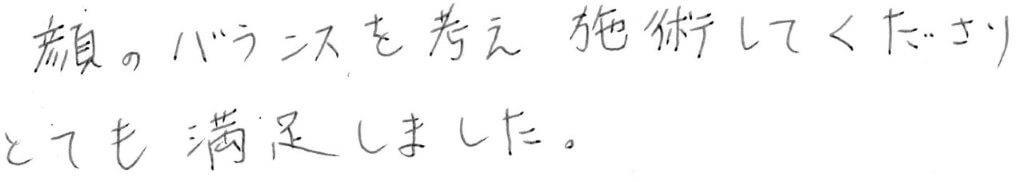 顔のバランスを考え 施術してくださり
とても満足しました。